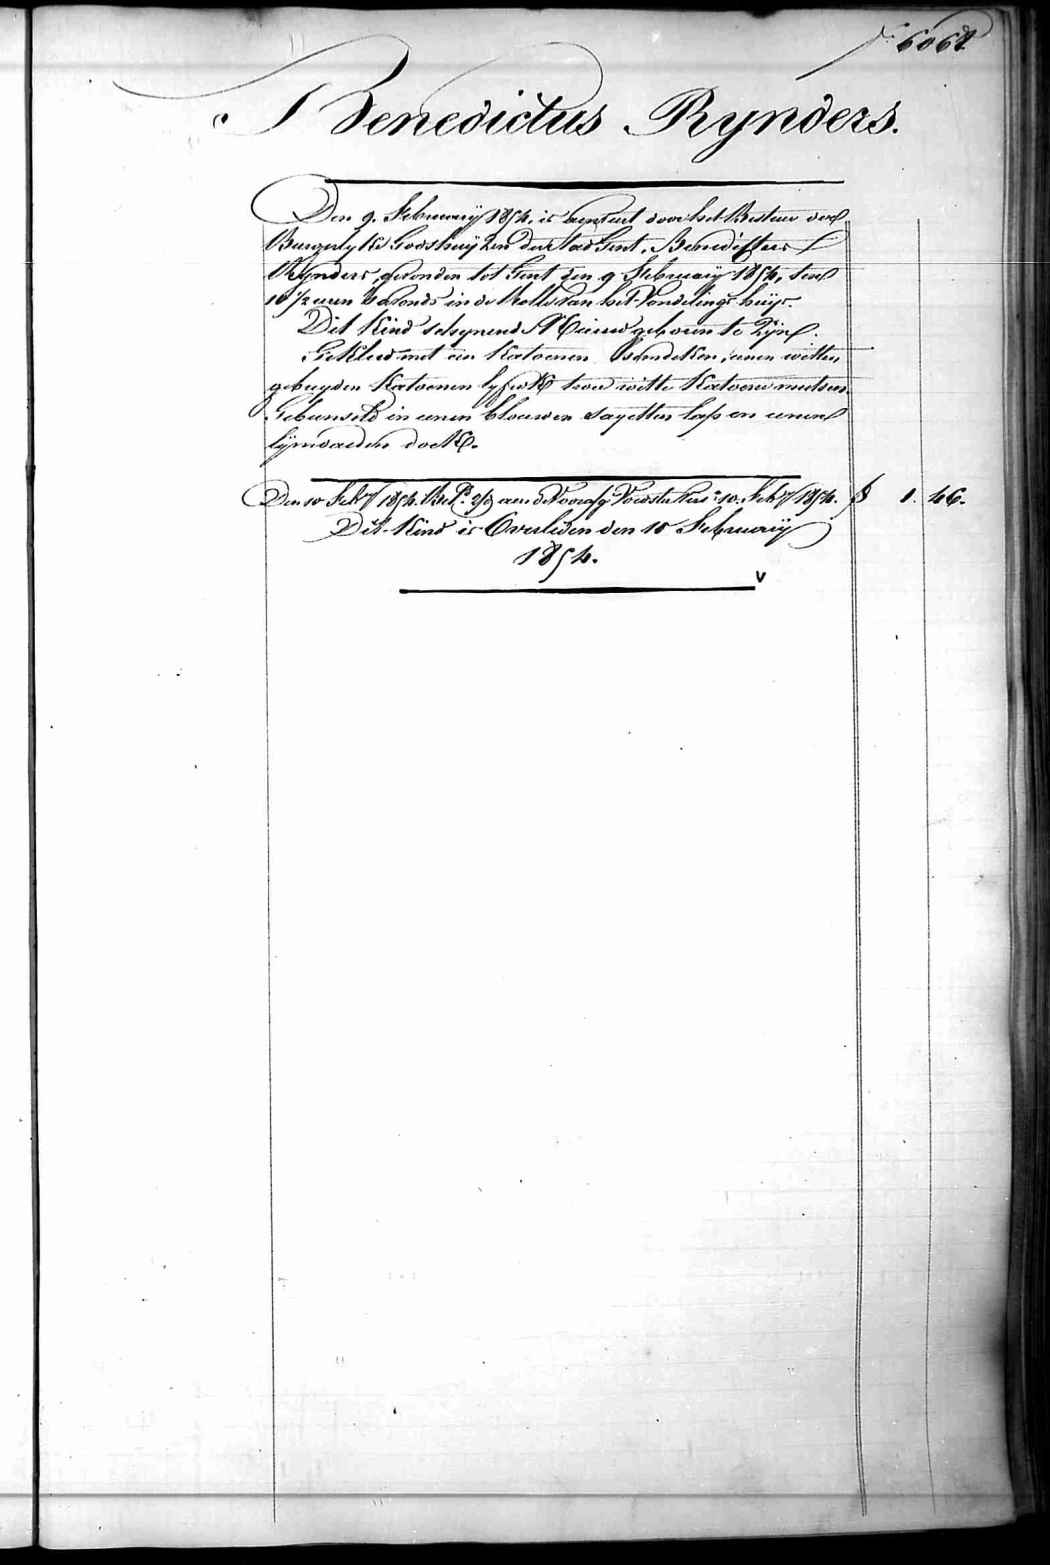 f 6068
Benedictus Rynders.
Den 9. February 1854, is aenveert door het Bestuer der
Burgerlyke Godshuyzen der Stad Gent, Benedictus
Rynders, gevonden tot Gent den 9 February 1854, ten
10 1/2 uren 's avonds in de Rolle van het Vondelings huys.
Dit Kind schynend Nieuw geboren te Zyn.
Gekleed met een Katoenen hemdeken, eenen witten
Katoenen lyfrok twee witte Katoene mutsen.
Gebunseld in eenen blauwen sayetten lap en eenen
lynwaeden doek.
Den 10 Feby 1854. aen de Voedster 10. Feby 1854. 1. 46.
Dit Kind is Overleden den 10 February
1854.
v